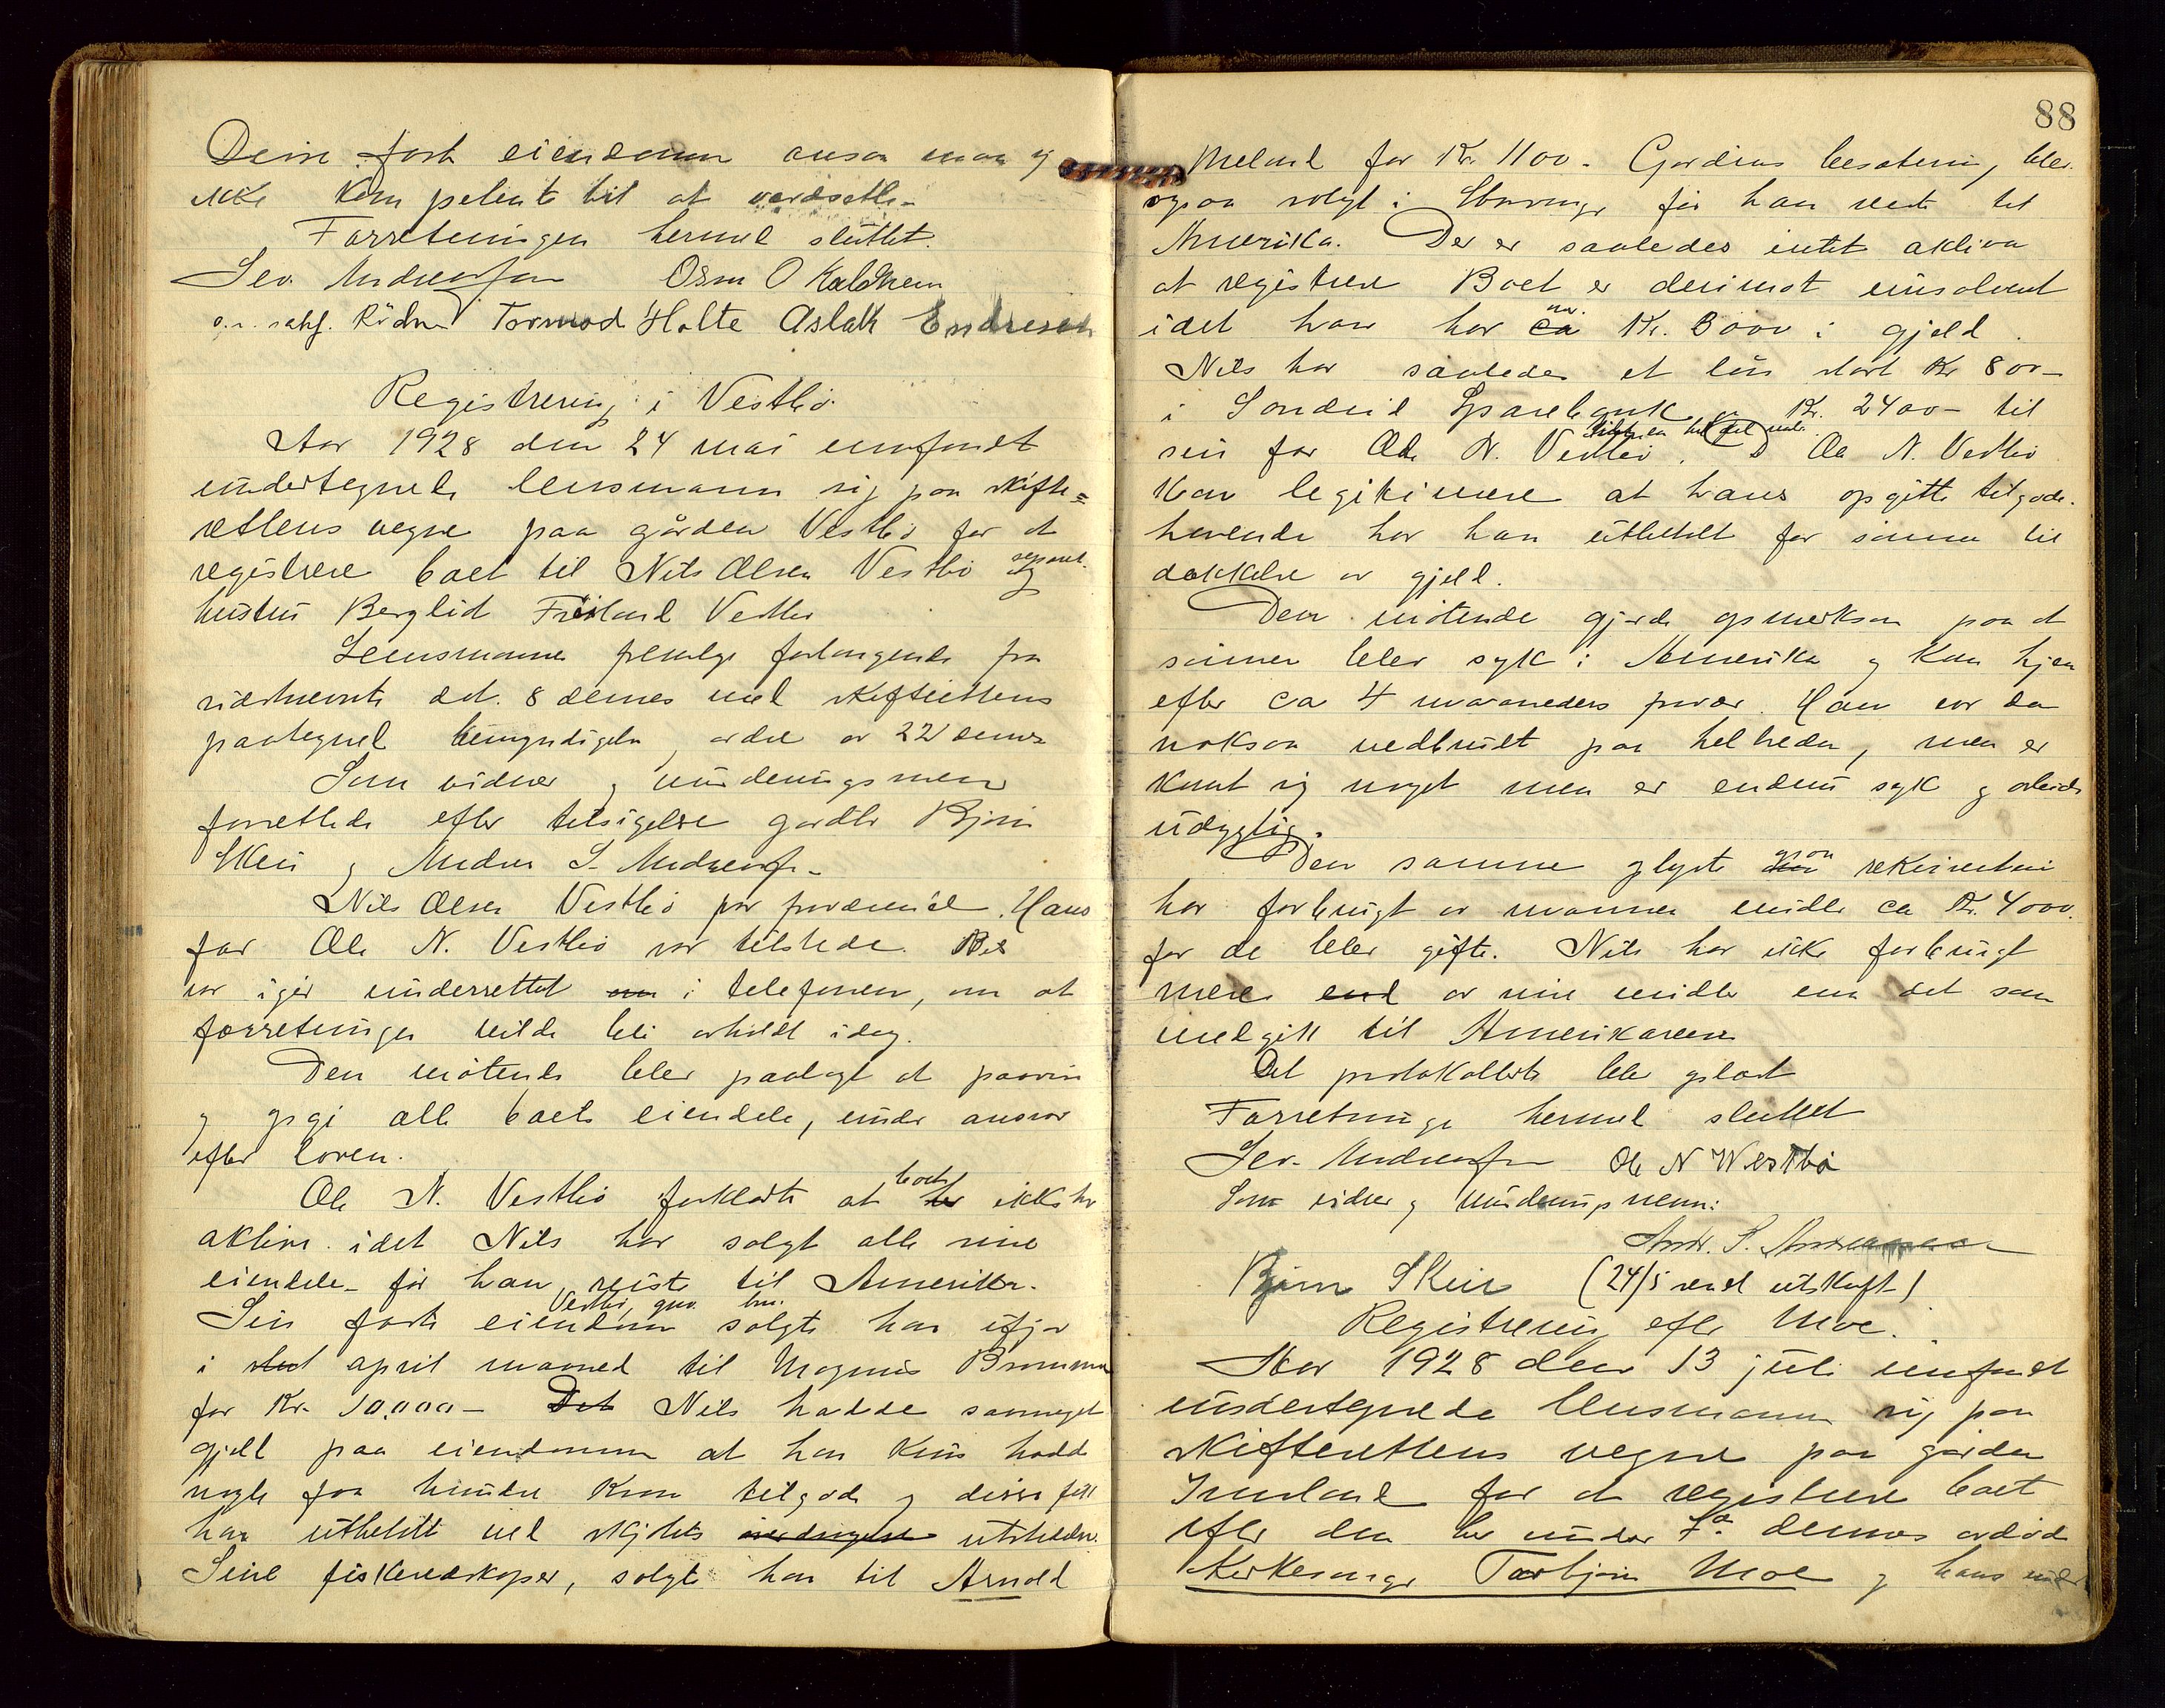 Deire faste eiendomme ansaa man sig
ikke kompetente til at værdsette.
Forretningen hermed sluttet.
Sev. Andreassen Osm O Kaldheim
Tormod Holte Aslak Endresen
Registrering i Vestbø.
Aar 1928 den 24 mai innfandt
undertegnede lensmann sig paa skifte=
rettens vegne paa gården Vestbø for at
registrere boet til Nils Olsen Vestbø og separ.
hustru Berglid Frøiland Vestbø
Lensmannen fremlge forlangende fra
sidstnevnte dat. 8 dennes med skifterettens
paategnede bemyndigelse, ordre av 22 dennes
Som vidner og vurderingsmenn
forrettede efter tilsigelse gaardbr Bjørn
Skeie og Andreas S. Andreassen.
Nils Olsen Vestbø var fraværende. Hans
far Ole N. Vestbø var tilstede. Nils
var igår underrettet om i telefonen, om at
forretningen vilde bli avholdt idag.
Den møtende blev paalagt at paavise
og opgi alle boets eiendele, under ansvar
efter loven.
Ole N. Vestbø forklarte at boet ikke har
aktiva idet Nils har solgt alle sine
eiendele før han reiste til Amerika.
Vestbø, gnr. bnr.
Sin faste eiendom solgte han ifjor
i april maaned til Magnus
for Kr. 10,000 - Det Nils hadde saameget
gjeld paa eiendommen at han kun hadde
nogle faa hundre kroner tilgode og disse fikk
han utbetalt ved skjøtets utstedelse.
Sine fiskeredskaper, solgte han til Arnold
88
Meland for Kr. 1100 - Gardens besætning blev
ogsaa solgt i Stavanger før han reiste til
Amerika. Der er saaledes intet aktiva
at registrere Boet er derimot insolvent
idet han har ca Kr. 3000 i gjeld.
Nils har saaledes et lån stort Kr 800 -
i Sandeid Sparebank, og Kr. 2400 - til
sin far Ole N. Vestbø. Ole N. Vestbø
kan legitimere at hans opgitte tilgode-
havende har han utbetalt for sønnen til
dækkelse av gjeld.
Den møtende gjorde opmerksom paa at
sønnen blev syk i Amerika og kom hjem
efter ca 4 maaneders fravær. Han var da
noksaa nedbrudt paa helbreden, men er
kommet sig noget men er endnu syk og arbeids
udyktig.
Den samme oplyste ogsaa rekvirentin
har forbrugt av mannens midler ca Kr. 4000.
før de blev gifte. Nils har ikke forbrugt
mere end av sine midler enn det som
medgikk til Amerikareisen
Det protokollerte blev oplæst
Forretningen hermed sluttet
Sev. Andreassen Ole N Westbø
Som vidner og vurderingsmenn:
Andr. S. Andreassen
Bjørn Skeie (24/5 sendt utskrift)
Registrering efter Moe.
Aar 1928 den 13 juli innfandt
undertegnede lensmann sig paa
skifterettens vegne paa gården
for at registrere boet
efter den her under 7de dennes avdøde
Kirkesanger Torbjørn Moe og hans